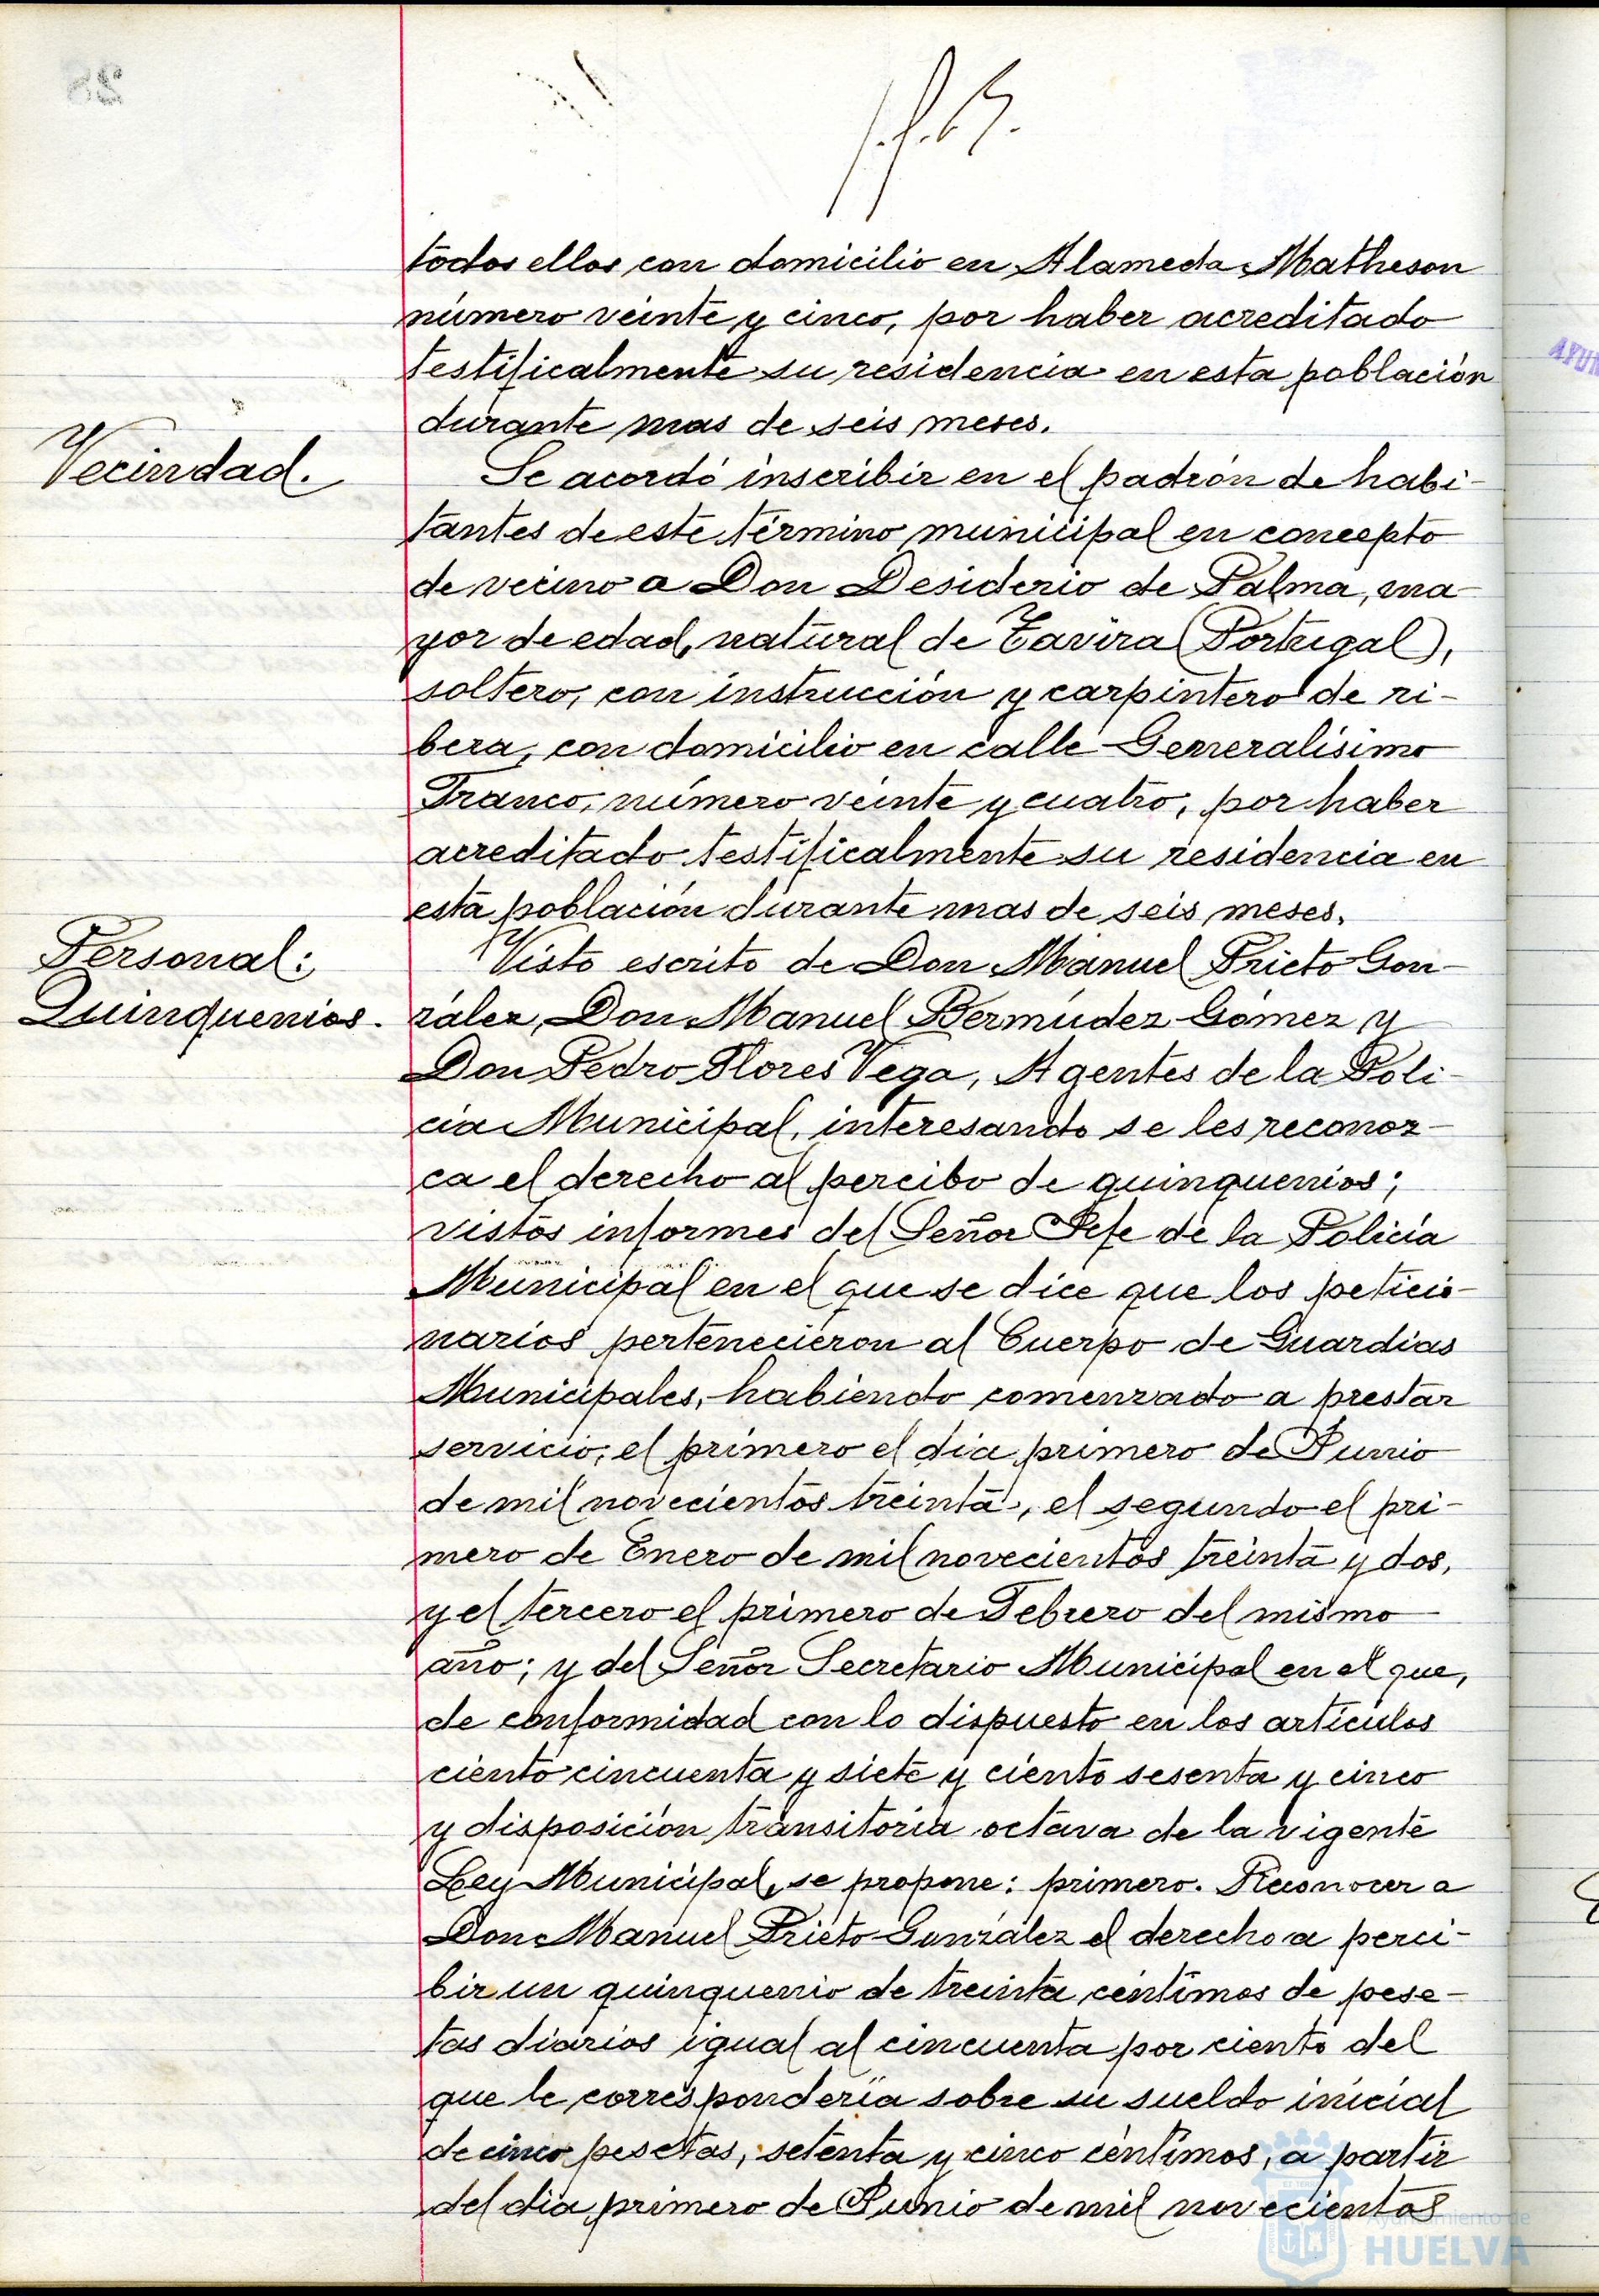 28
todos ellos con domicilio en Alameda Matheson
número veinte y cinco, por haber acreditado
testificalmente su residencia en esta población
durante mas de seis meses.
Vecindad.
Se acordó inscribir en el padrón de habi-
tantes de este término municipal en concepto
de vecino a Don Desiderio de Palma, ma-
yor de edad, natural de Tavira (Portugal),
soltero, con instrucción y carpintero de ri-
bera, con domicilio en calle Generalísimo
Franco, número veinte y cuatro, por haber
acreditado testificalmente su residencia en
esta población durante mas de seis meses.
Personal:
Quinquenios.
Visto escrito de Don Manuel Prieto Gon-
zález, Don Manuel Bermúdez Gómez y
Don Pedro Flores Vega, Agentes de la Poli-
cía Municipal, interesando se les reconoz-
ca el derecho al percibo de quinquenios;
vistos informes del Señor Jefe de la Policía
Municipal en el que se dice que los peticio-
narios pertenecieron al Cuerpo de Guardias
Municipales, habiendo comenzado a prestar
servicio, el primero el día primero de Junio
de mil novecientos treinta, el segundo el pri-
mero de Enero de mil novecientos treinta y dos,
y el tercero el primero de Febrero del mismo
año; y del Señor Secretario Municipal en el que,
de conformidad con lo dispuesto en los artículos
ciento cincuenta y siete y ciento sesenta y cinco
y disposición transitoria octava de la vigente
Ley Municipal, se propone: primero. Reconocer a
Don Manuel Prieto González el derecho a perci-
bir un quinquenio de treinta céntimos de pese-
tas diarios igual al cincuenta por ciento del
que le correspondería sobre su sueldo inicial
de cinco pesetas, setenta y cinco céntimos, a partir
del día primero de Junio de mil novecientos
Ayuntamiento de
HUELVA